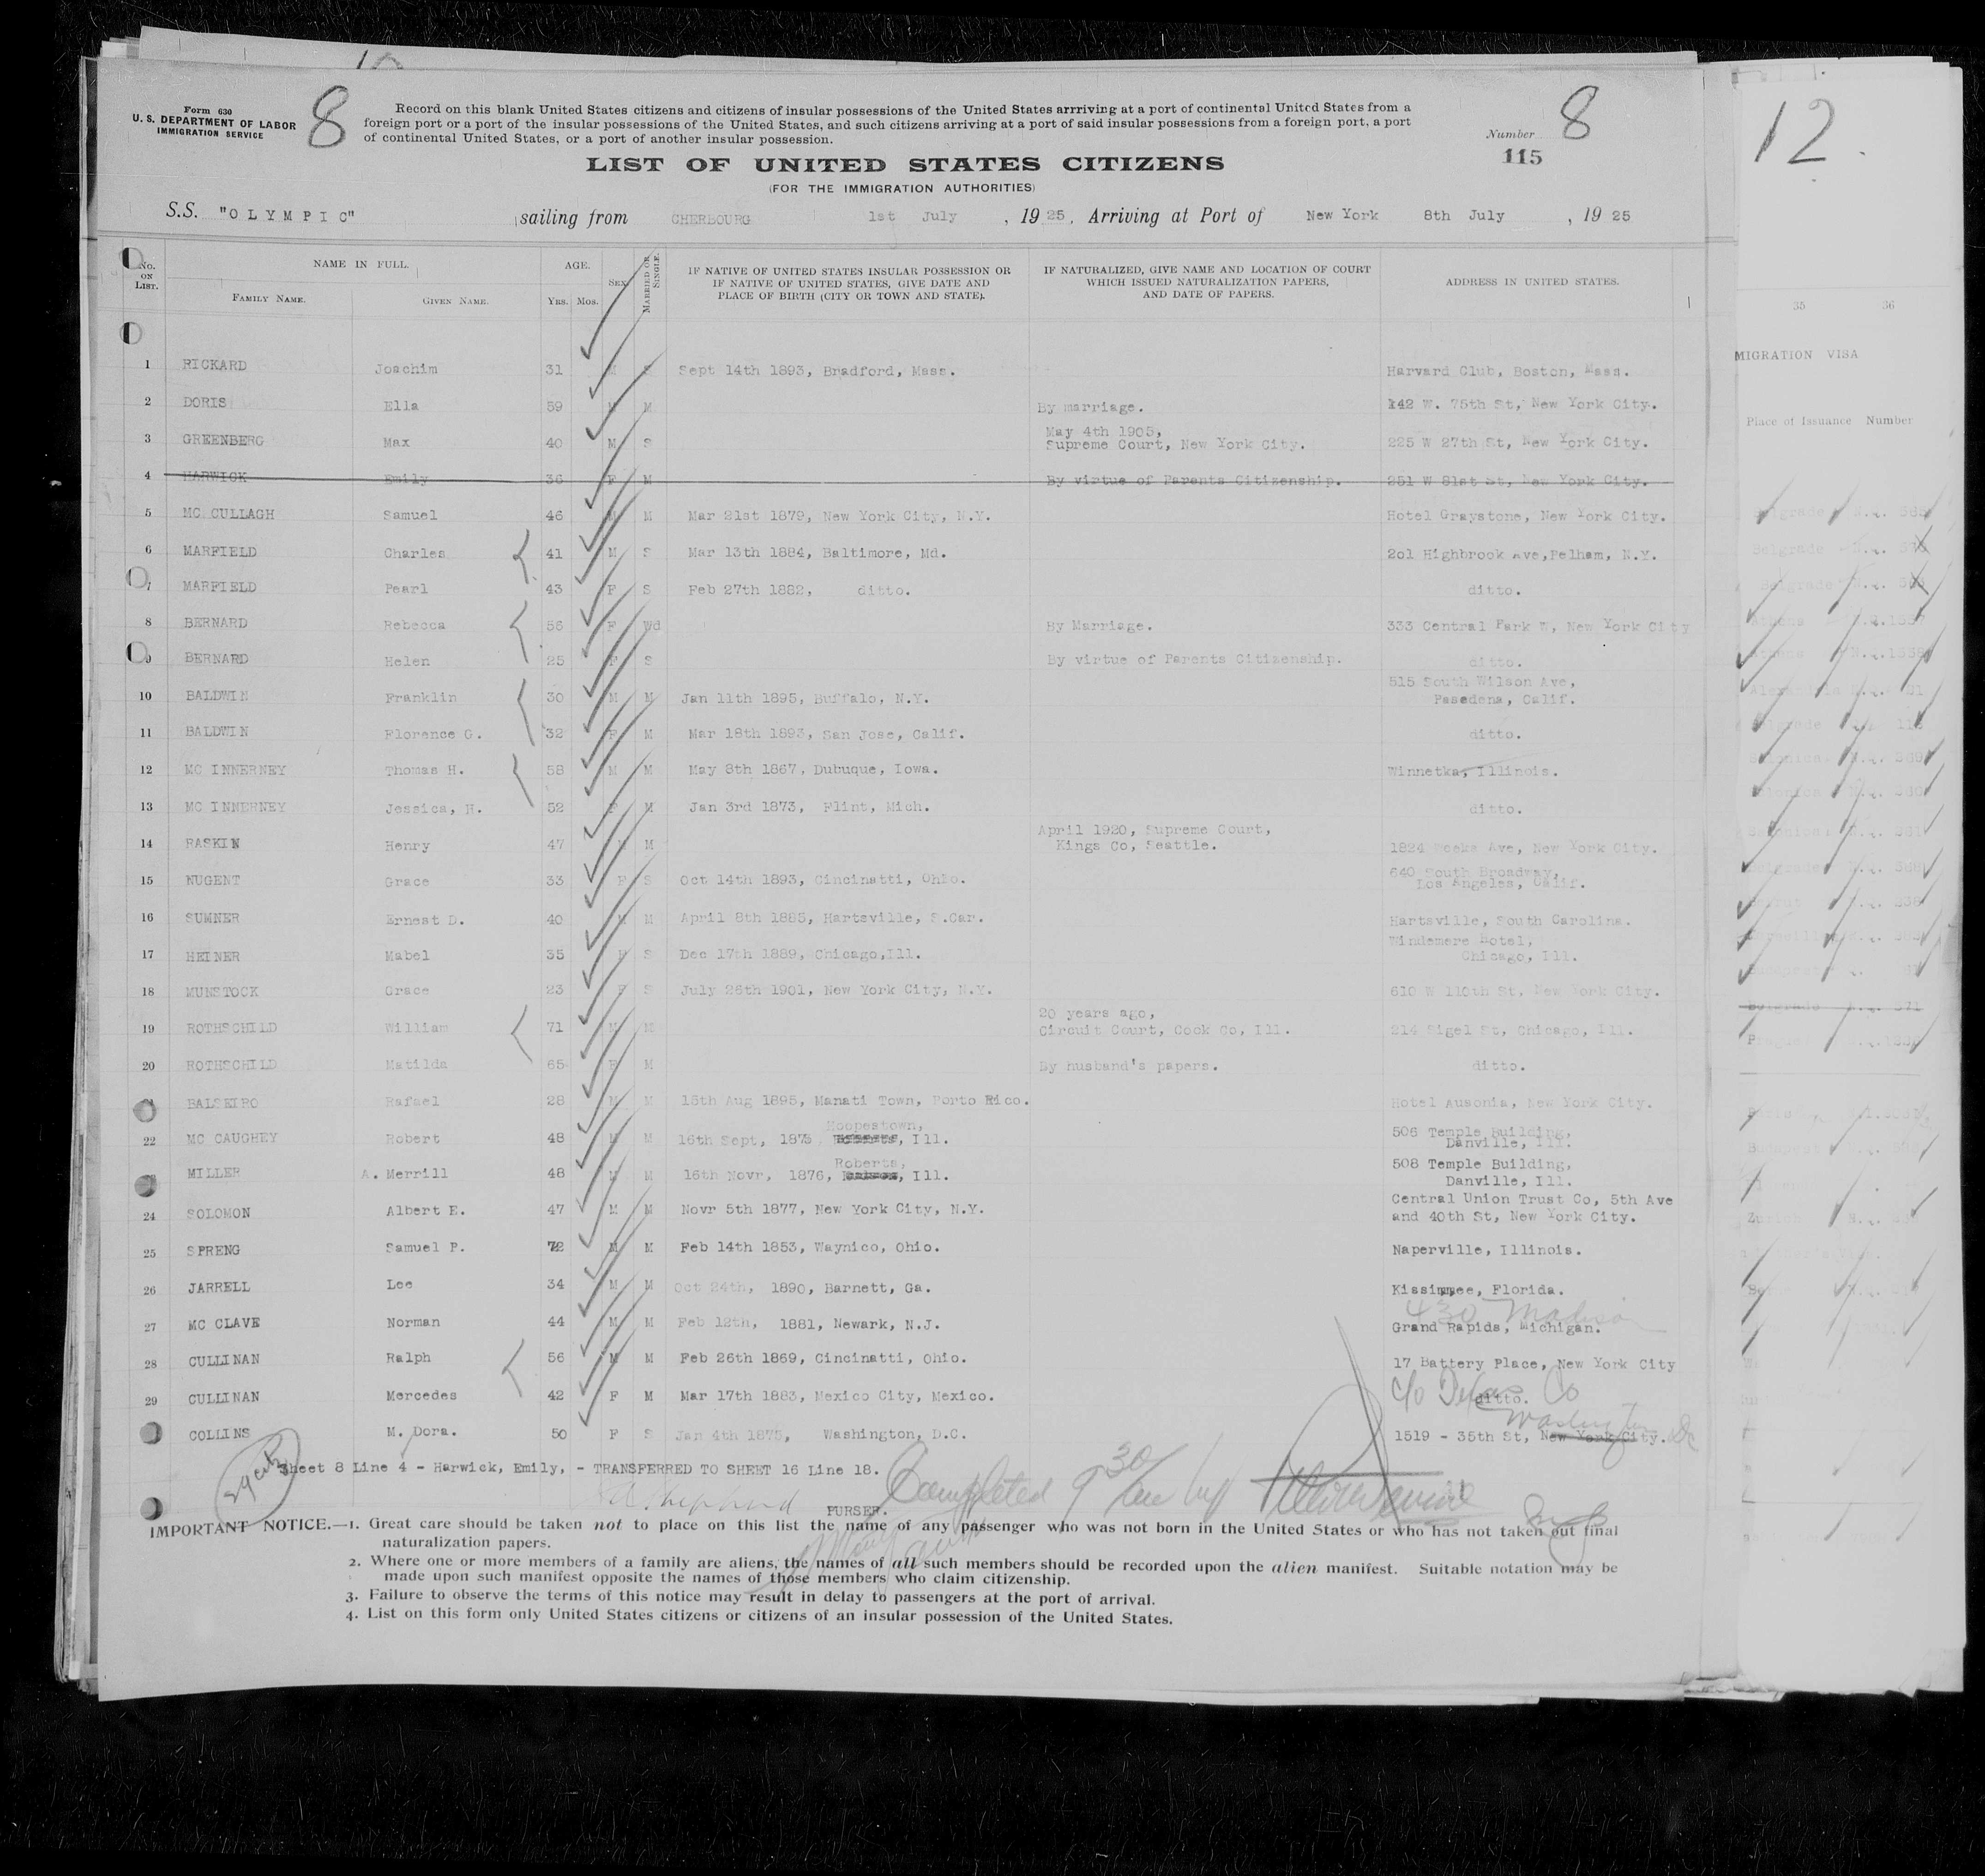 Form 630
U. S. DEPARTMENT OF LABOR
IMMIGRATION SERVICE
8
Record on this blank United States citizens and citizens of insular possessions of the United States arrriving at a port of continental United States from a
foreign port or a port of the insular possessions of the United States, and such citizens arriving at a port of said insular possessions from a foreign port, a port
of continental United States, or a port of another insular possession.
Number 8
115
LIST OF UNITED STATES CITIZENS
(FOR THE IMMIGRATION AUTHORITIES)
S.S. "OLYMPIC" sailing from CHERBOURG 1st July, 1925, Arriving at Port of New York 8th July, 1925
No. ON LIST. NAME IN FULL. FAMILY NAME. GIVEN NAME. AGE. YRS. MOS. SEX MARRIED OR SINGLE. IF NATIVE OF UNITED STATES INSULAR POSSESSION OR IF NATIVE OF UNITED STATES, GIVE DATE AND PLACE OF BIRTH (CITY OR TOWN AND STATE). IF NATURALIZED, GIVE NAME AND LOCATION OF COURT WHICH ISSUED NATURALIZATION PAPERS, AND DATE OF PAPERS. ADDRESS IN UNITED STATES.
1 RICKARD Joachim 31 M S Sept 14th 1893, Bradford, Mass. Harvard Club, Boston, Mass.
2 DORIS Ella 59 M By marriage. 142 W. 75th St, New York City.
3 GREENBERG Max 40 M S May 4th 1905, Supreme Court, New York City. 225 W 27th St, New York City.
4 HARWICK Emily 36 F M By virtue of Parents Citizenship. 251 W 81st St, New York City.
5 MC CULLAGH Samuel 46 M M Mar 21st 1879, New York City, N.Y. Hotel Graystone, New York City.
6 MARFIELD Charles 41 M S Mar 13th 1884, Baltimore, Md. 201 Highbrook Ave, Pelham, N.Y.
7 MARFIELD Pearl 43 F S Feb 27th 1882, ditto. ditto.
8 BERNARD Rebecca 56 F Wd By Marriage. 333 Central Park W, New York City
9 BERNARD Helen 25 F S By virtue of Parents Citizenship. ditto.
10 BALDWIN Franklin 30 M M Jan 11th 1895, Buffalo, N.Y. 515 South Wilson Ave, Pasedena, Calif.
11 BALDWIN Florence G. 32 F M Mar 18th 1893, San Jose, Calif. ditto.
12 MC INNERNEY Thomas H. 58 M M May 8th 1867, Dubuque, Iowa. Winnetka, Illinois.
13 MC INNERNEY Jessica, H. 52 F M Jan 3rd 1873, Flint, Mich. ditto.
14 RASKIN Henry 47 M M April 1920, Supreme Court, Kings Co, Seattle. 1824 Weeks Ave, New York City.
15 NUGENT Grace 33 F S Oct 14th 1893, Cincinatti, Ohio. 640 South Broadway, Los Angeles, Calif.
16 SUMNER Ernest D. 40 M M April 8th 1885, Hartsville, S.Car. Hartsville, South Carolina.
17 HEINER Mabel 35 F S Dec 17th 1889, Chicago, Ill. Windemere Hotel, Chicago, Ill.
18 MUNSTOCK Grace 23 F S July 26th 1901, New York City, N.Y. 610 W 110th St, New York City.
19 ROTHSCHILD William 71 M M 20 years ago, Circuit Court, Cook Co, Ill. 214 Sigel St, Chicago, Ill.
20 ROTHSCHILD Matilda 65 F M By husband's papers. ditto.
BALSEIRO Rafael 28 M M 15th Aug 1895, Manati Town, Porto Rico. Hotel Ausonia, New York City.
22 MC CAUGHEY Robert 48 M M 16th Sept, 1876 Hoopestown, Ill. 506 Temple Building, Danville, Ill.
MILLER A. Merrill 48 M M 16th Novr, 1876, Roberts, Ill. 508 Temple Building, Danville, Ill.
24 SOLOMON Albert E. 47 M M Novr 5th 1877, New York City, N.Y. Central Union Trust Co, 5th Ave and 40th St, New York City.
25 SPRENG Samuel P. 72 M M Feb 14th 1853, Waynico, Ohio. Naperville, Illinois.
26 JARRELL Lee 34 M M Oct 24th, 1890, Barnett, Ga. Kissimmee, Florida.
27 MC CLAVE Norman 44 M M Feb 12th, 1881, Newark, N.J. 430 Madison Grand Rapids, Michigan.
28 CULLINAN Ralph 56 M M Feb 26th 1869, Cincinatti, Ohio. 17 Battery Place, New York City
29 CULLINAN Mercedes 42 F M Mar 17th 1883, Mexico City, Mexico. c/o Co ditto.
COLLINS M. Dora. 50 F S Jan 4th 1875, Washington, D.C. 1519 - 35th St, New York City. Washington DC
Sheet 8 Line 4 - Harwick, Emily, - TRANSFERRED TO SHEET 16 Line 18.
PURSER.
Completed 9 30
IMPORTANT NOTICE.—1. Great care should be taken not to place on this list the name of any passenger who was not born in the United States or who has not taken out final
naturalization papers.
2. Where one or more members of a family are aliens, the names of all such members should be recorded upon the alien manifest. Suitable notation may be
made upon such manifest opposite the names of those members who claim citizenship.
3. Failure to observe the terms of this notice may result in delay to passengers at the port of arrival.
4. List on this form only United States citizens or citizens of an insular possession of the United States.
12
35 36
MIGRATION VISA
Place of Issuance Number